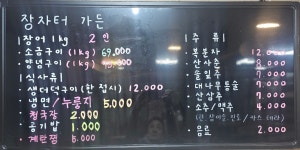 장자터 가든
장어 1kg 2인
소금구이 (1kg) 69,000
양념구이 (1kg)
식사류
생더덕구이 (한접시) 12,000
냉면 / 누룽지 5,000
청국장 2,000
공기밥 1,000
계란찜 5,000
주류
복분자 12,000
산사춘
솔잎주
대나무통술
산삼주
소주 / 맥주
음료 2,000